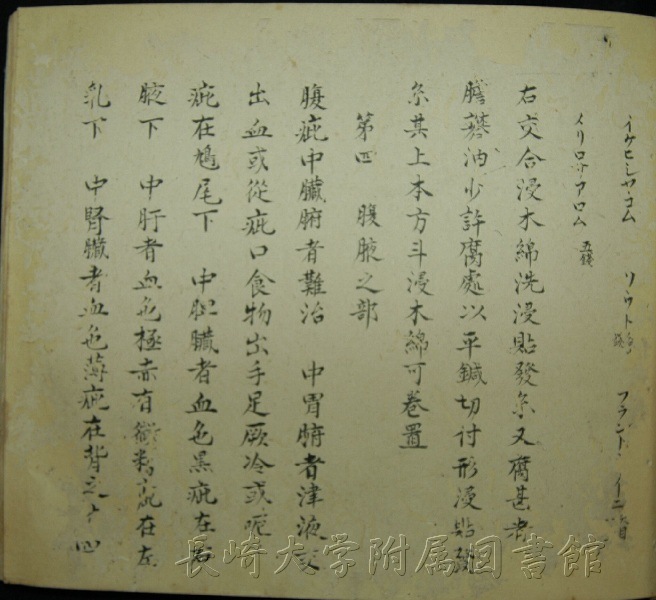 イケヒシヤコム ソウト フラント
イリロサアロム 五錢
右交合浸木綿洗浸貼發糸又腐甚者
油少許腐處以平鍼切付形浸貼
糸其上本方斗浸木綿可卷置
第四 腹腋之部
腹疵中臓腑者難治 中胃腑者津液或
出血或從疵口食物出手足厥冷或呃
疵在鳩尾下 中胆臓者血色黒疵在右
腋下 中肝者血色極赤有 在左
乳下 中腎臓者血色薄疵在背之十四
長崎大学附属図書館